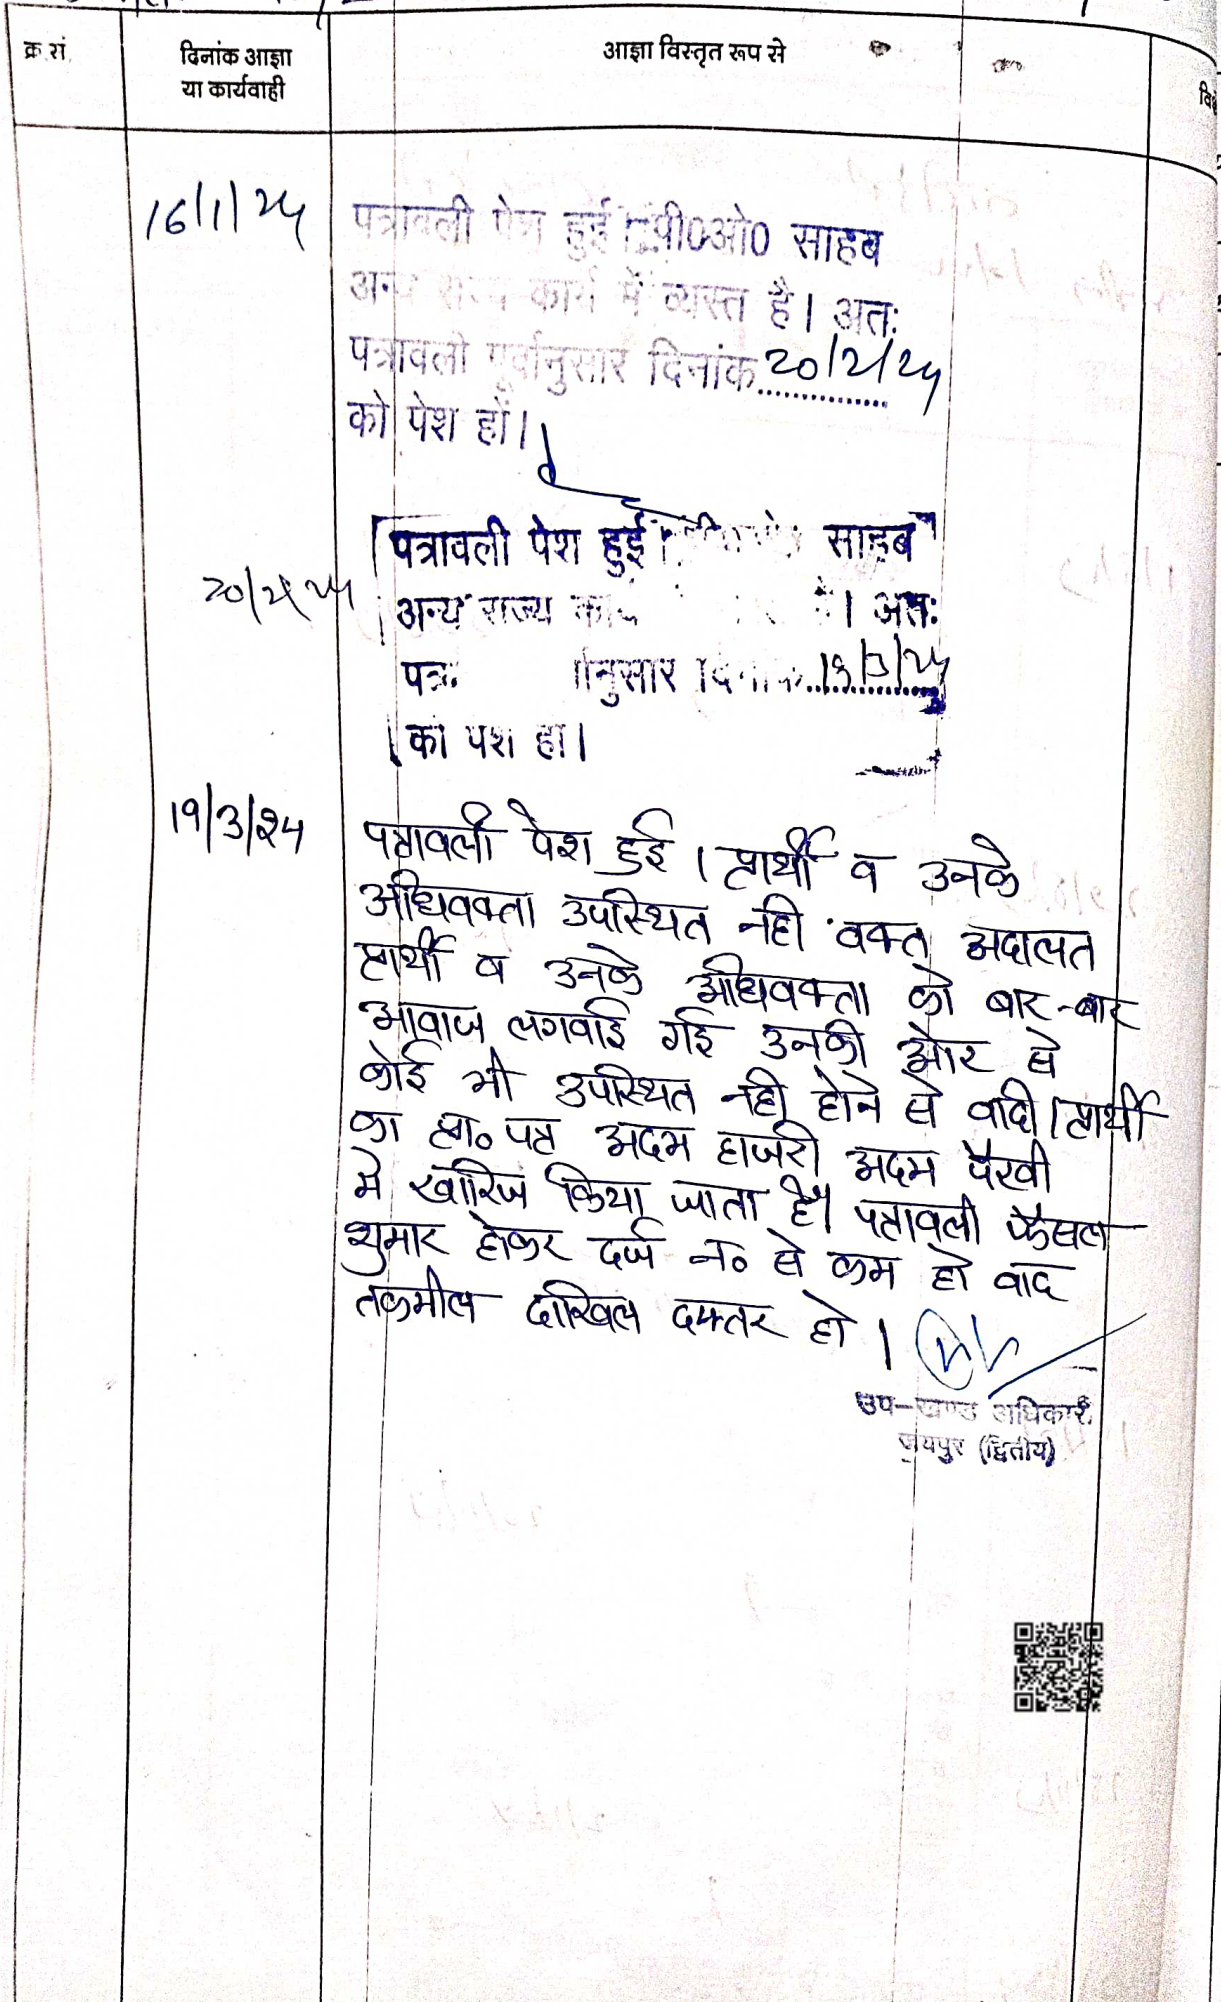 क्र.सं.
दिनांक आज्ञा
या कार्यवाही
आज्ञा विस्तृत रूप से
16/1/24
पत्रावली पेश हुई। पी0ओ0 साहब
अन्य राज्य कार्य में व्यस्त है। अतः
पत्रावली पूर्वानुसार दिनांक 20/2/24
को पेश हों।
20/2/24
पत्रावली पेश हुई। साहब
अन्य राज्य कार्य है। अतः
नुसार दिनांक
को पेश हो।
19/3/24
पत्रावली पेश हुई। प्रार्थी व उनके
अधिवक्ता उपस्थित नही वक्त अदालत
प्रार्थी व उनके अधिवक्ता को बार-बार
आवाज लगवाई गई उनकी ओर से
कोई भी उपस्थित नही होने से वादी/प्रार्थी
का प्रा० पत्र अदम हाजरी अदम पैरवी
मे खारिज किया जाता है। पत्रावली फैसल
शुमार होकर दर्ज न० से कम हो वाद
तकमील दाखिल दफ्तर हो।
उप-खण्ड अधिकारी
जयपुर (द्वितीय)